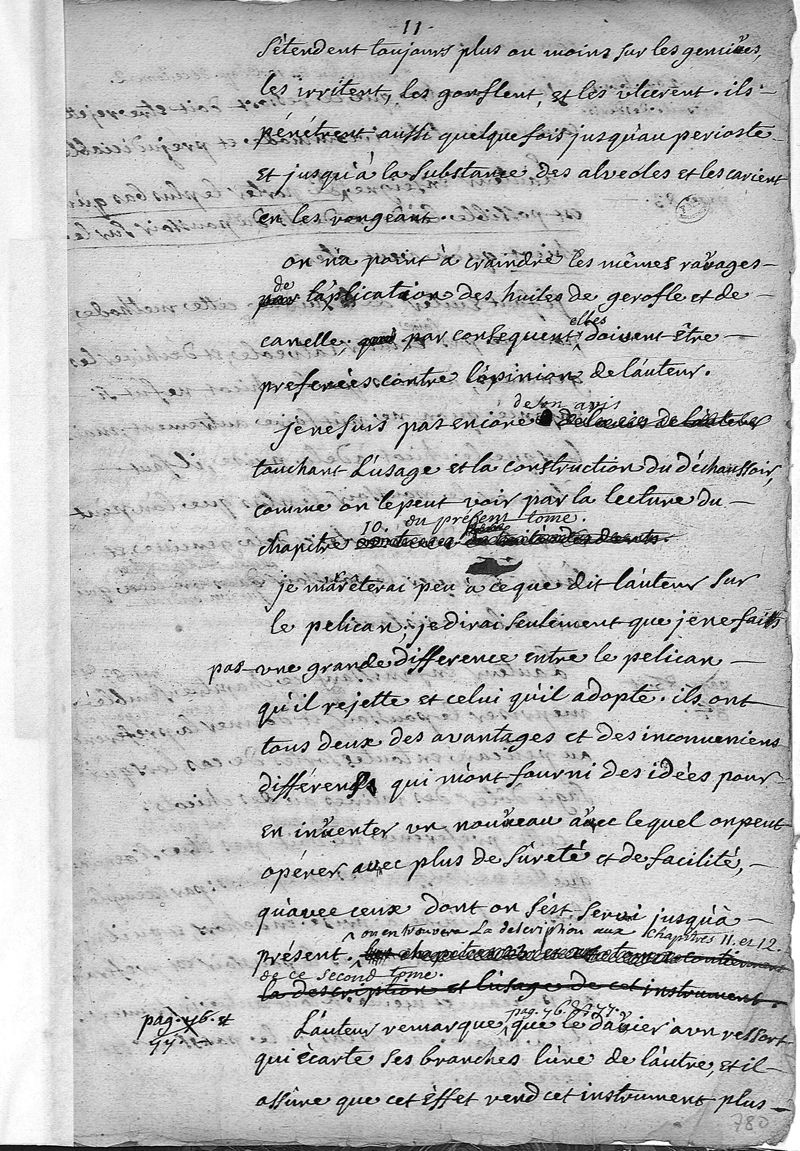 11
s'étendent toujours plus ou moins sur les gencives,
les irritent, les gonflent, et les ulcerent. ils
pénétrent aussi quelquefois jusqu'au perioste
et jusqu'à la substance des alveoles et les carient
en les rongeant.
on n'a point à craindre les mêmes ravages
de
par l'aplication des huiles de gerofle et de
elles
canelle, qui par consequent doivent être
preferées contre l'opinion de l'auteur.
de son avis
je ne suis pas encore
touchant l'usage et la construction du déchaussoir,
comme on le peut voir par la lecture du
10. du présent tome.
chapitre
je m'arrêterai peu à ce que dit l'auteur sur
le pelican; je dirai seulement que je ne fais
pas une grande difference entre le pelican
qu'il rejette et celui qu'il adopte. ils ont
tous deux des avantages et des inconveniens
différens qui m'ont fourni des idées pour
en inventer un nouveau avec lequel on peut
opérer avec plus de sûreté et de facilité,
qu'avec ceux dont on s'est servi jusqu'à
on en trouvera la description aux chapitres 11. et 12.
présent.
de ce second tome.
la description et l'usage de cet instrument.
pag. 76. et
77
pag. 76. et 77.
L'auteur remarque que le davier a un ressort
qui écarte ses branches l'une de l'autre, et il
assûre que cet éffet rend cet instrument plus
780